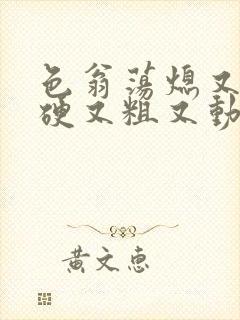 色翁蕩熄又
硬又粗又動
黃文惠